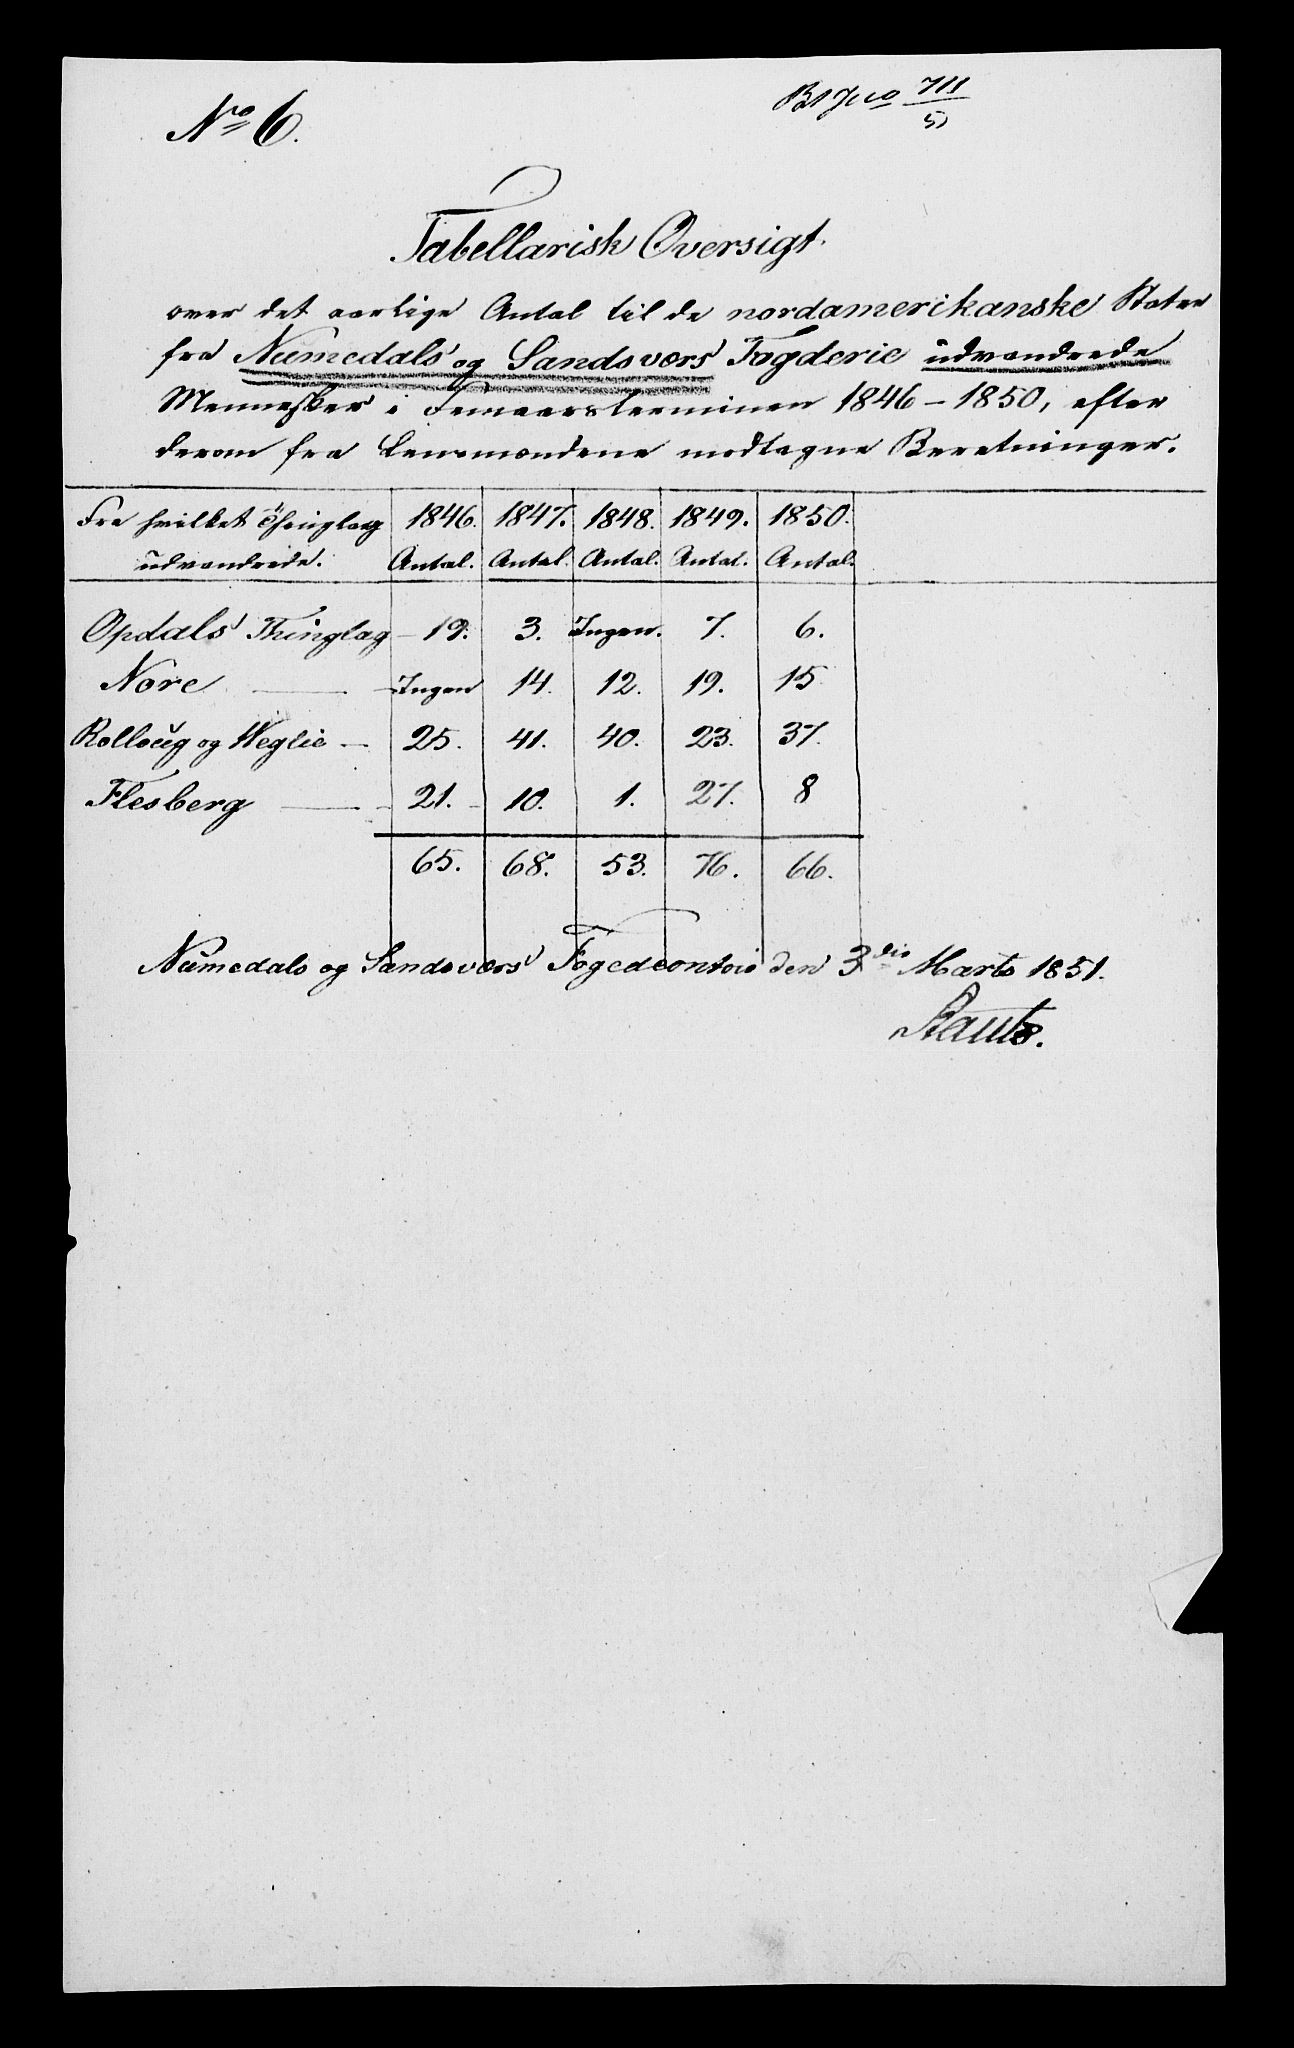 No 6.
711
51
Tabellarisk Oversigt
over det aarlige Antal til de nordamerikanske Stater
fra Numedals og Sandsværs Fogderie udvandrede
Mennesker i Femaarsterminen 1846 – 1850, efter
derom fra Lensmændene modtagne Beretninger.
Fra hvilket Thinglag 1846. 1847. 1848. 1849. 1850.
udvandrede. Antal. Antal. Antal. Antal. Antal.
Opdals Thinglag – 19. 3. Ingen. 7. 6.
Nore — Ingen 14. 12. 19. 15
Rolloug og Weglie – 25. 41. 40. 23. 37.
Flesberg — 21. 10. 1. 27. 8
65. 68. 53. 76. 66.
Numedals og Sandsværs Fogedcontoir den 3die Marts 1851.